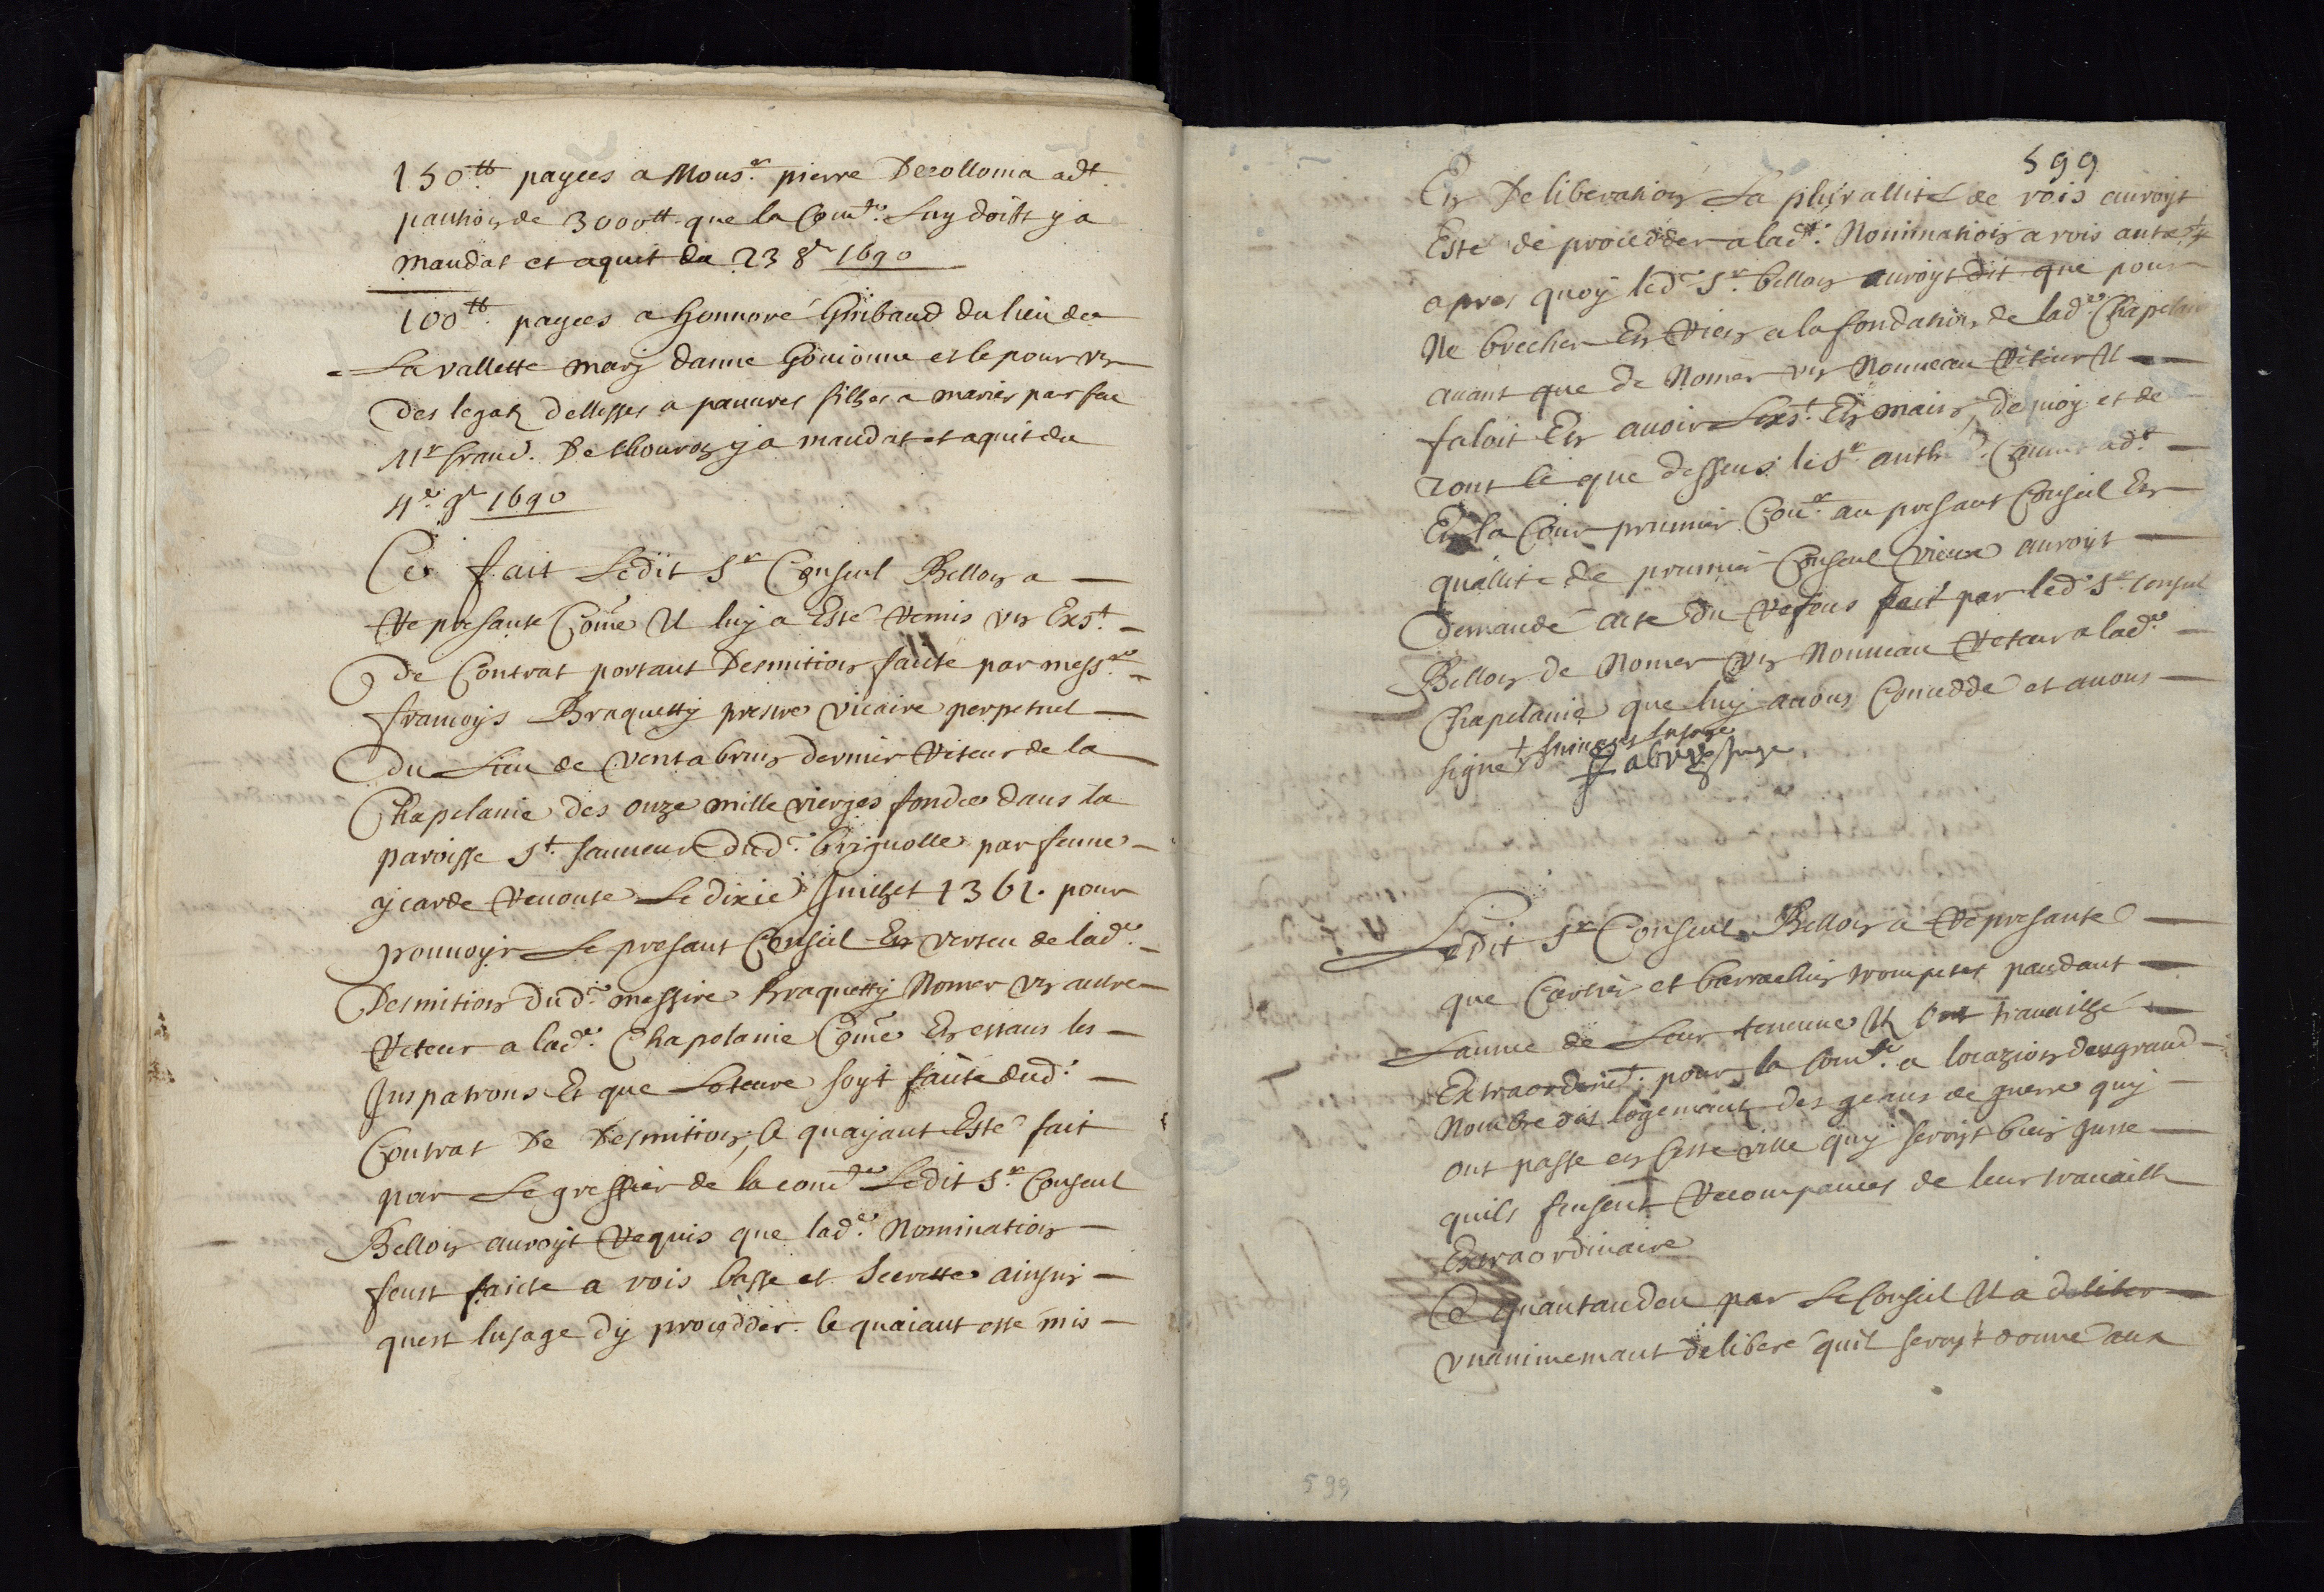 150tt payées a Mousr pierre Decolloma adt
pantion de 3000tt que la Comté luy doibt y a
mandat et aquit du 23 8r 1690
100tt payées a honnoré Guibaud du lieu de
La vallette mary danne Gouionne et le pour un
des legatz dellesses a pauvres filhes a marier par feu
Mr Franc. De y a mandat et aquit du
4e 9r 1690
Ce fait Ledit Sr Conseul Bellon a
represanté Come Il luy a Esté remis un Exst
de Contrat portant Desmition faite par messre
françoys Braquetty prestre vicaire perpetuel
du Lieu de Ventabrun dernier Reteur de la
Chapelanie des onze mille vierges fondée dans la
paroisse St Sauveur dud. brignolle par feune
ycarde Renouse Le dixie Juilhet 1361. pour
prouvoyr Le presant Conseil En verteu de lade
Desmition dud. messire Braquetty Nomer un autre
Reteur a lade Chapelanie Come En estans les
Juspatrons Et que Lecteure soyt faite dud.
Contrat de Desmition, Ce quayant Esté fait
par Le greffier de la comté Ledit Sr Conseul
Bellon auroyt requis que lade Nomination
feust faicte a vois basse et secrette ainsin
quest lusage dy proceddér. Ce quaiant esté mis
599
En Deliberation La plurallité de vois auroyt
Esté de proceddér a lade Nomination a vois aute +
apres quoy led Sr bellon auroyt dit que pour
Ne brecher En Rien a la fondation de lade Chapelanie
avant que de Nomer un Nouveau Reteur Il
faloit En avoir Lexst En main, de quoy et de
tout Ce que dessus le Sr anthe adt
En la Cour prumier Conr au presant Conseil En
quallité de prumier Conseul vieux auroyt
Demandé acte du Refous fait par led Sr Consul
Bellon de Nomer un Nouveau Reteur a lade
Chapelanie que luy avons Conceddé et avons
signé + suivant lusage
fabry juge
Ledit Sr Conseul Bellon a represanté
que Carthié et barrachin trompetes pandant
Lannee de Leur teneure Il ont travailhé
Extraordint pour la Comté a locazion du grand
Nombre des logemantz des geans de guerre quy
ont passe en Ceste ville quy seroyt bien Juste
quils feusent recompances de leur travailh
Extraordinaire
Ce quantandeu par Le Conseil Il a deliber
vnanimemant deliberé quil seroyt donné aux
599